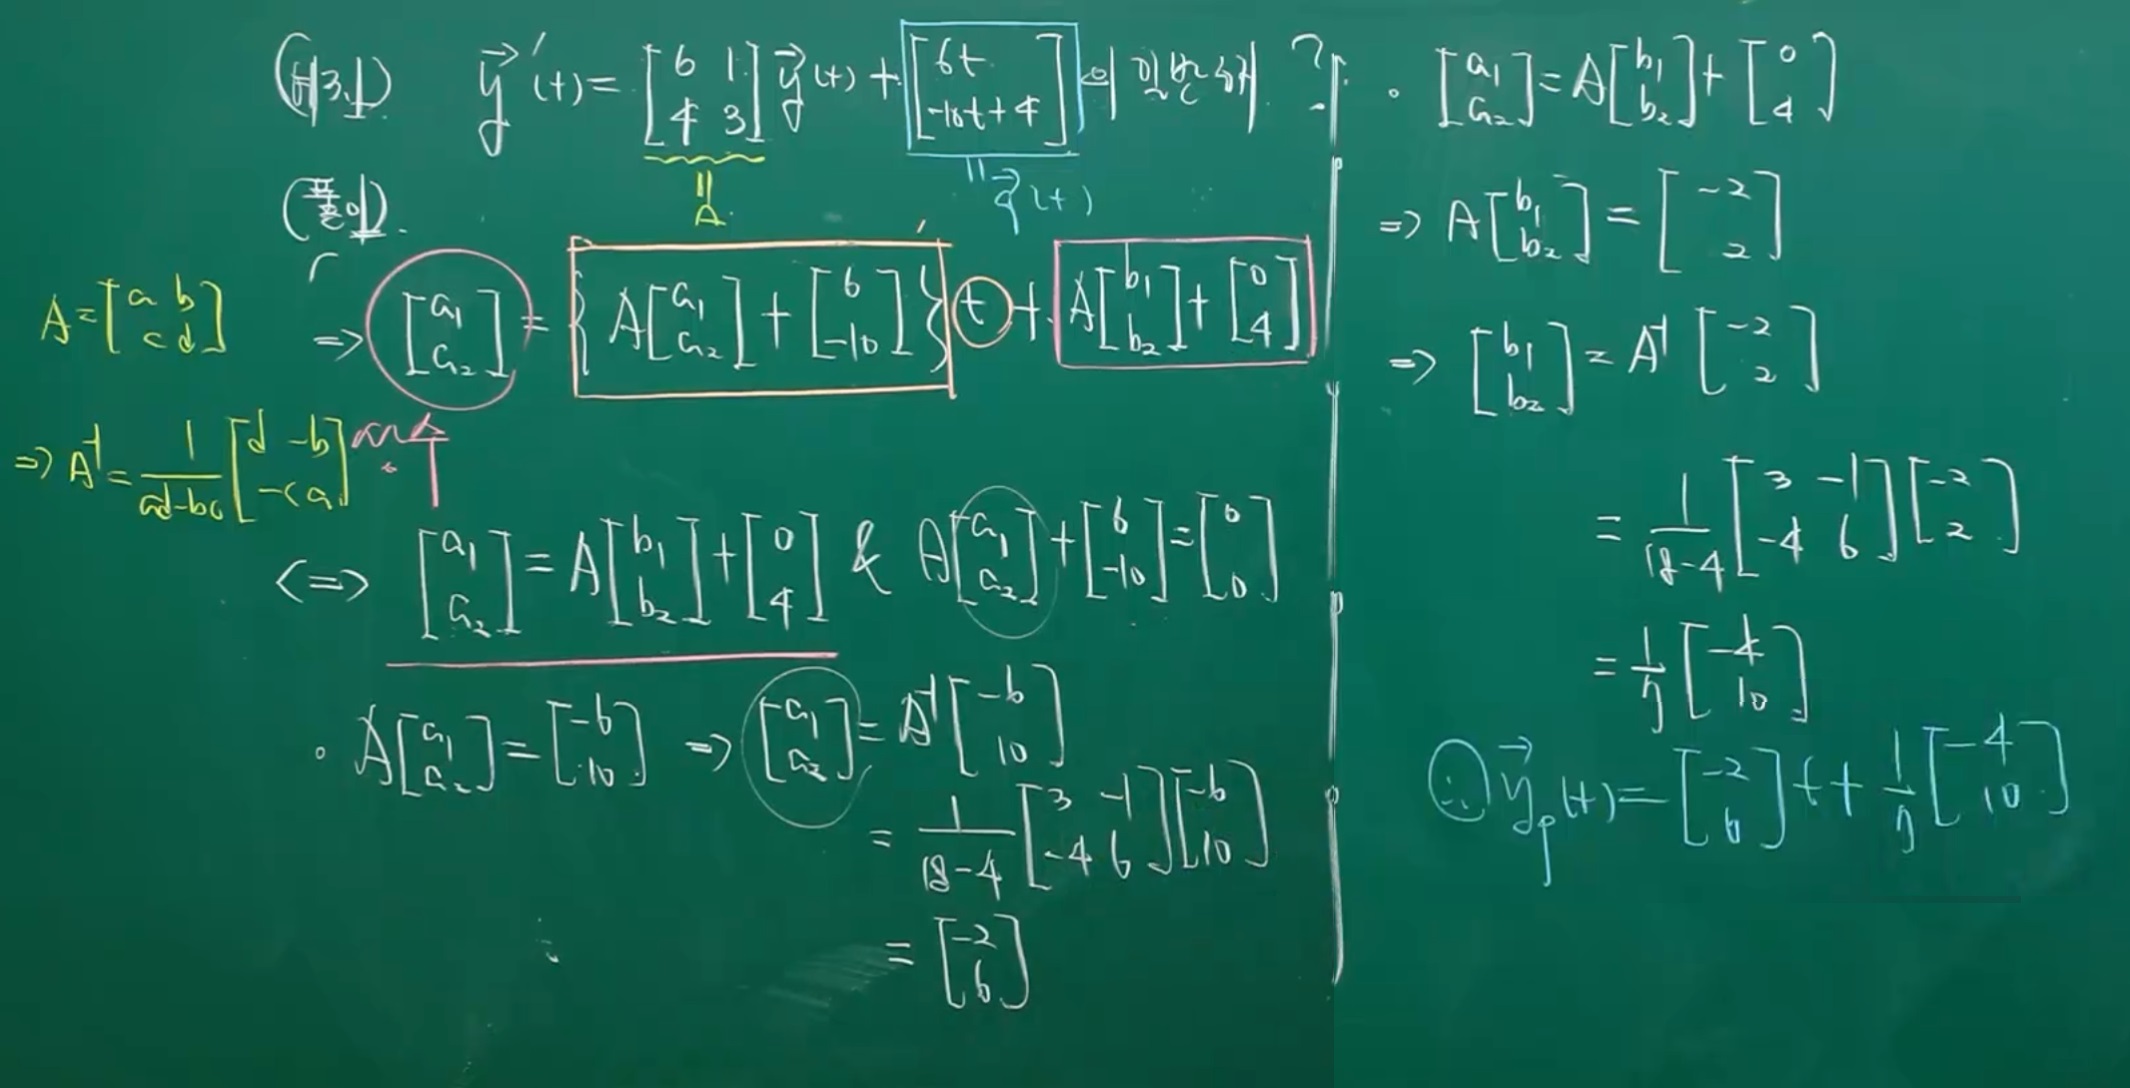 (예3.1) y⃗'(t) = [6 1; 4 3] y⃗(t) + [6t; -10t+4] 의 일반해?
= A
= q⃗(t)
(풀이).
⇒ [a₁; a₂] = { A[a₁; a₂] + [6; -10] } t + A[b₁; b₂] + [0; 4]
A = [a b; c d]
⇒ A⁻¹ = 1/(ad-bc) [d -b; -c a]
<=> [a₁; a₂] = A[b₁; b₂] + [0; 4] & A[a₁; a₂] + [6; -10] = [0; 0]
• A[a₁; a₂] = [-6; 10] ⇒ [a₁; a₂] = A⁻¹[-6; 10]
= 1/(18-4) [3 -1; -4 6][-6; 10]
= [-2; 6]
• [a₁; a₂] = A[b₁; b₂] + [0; 4]
⇒ A[b₁; b₂] = [-2; 2]
⇒ [b₁; b₂] = A⁻¹[-2; 2]
= 1/(18-4) [3 -1; -4 6][-2; 2]
= 1/7 [-4; 10]
∴ y⃗p(t) = [-2; 6] t + 1/7 [-4; 10]